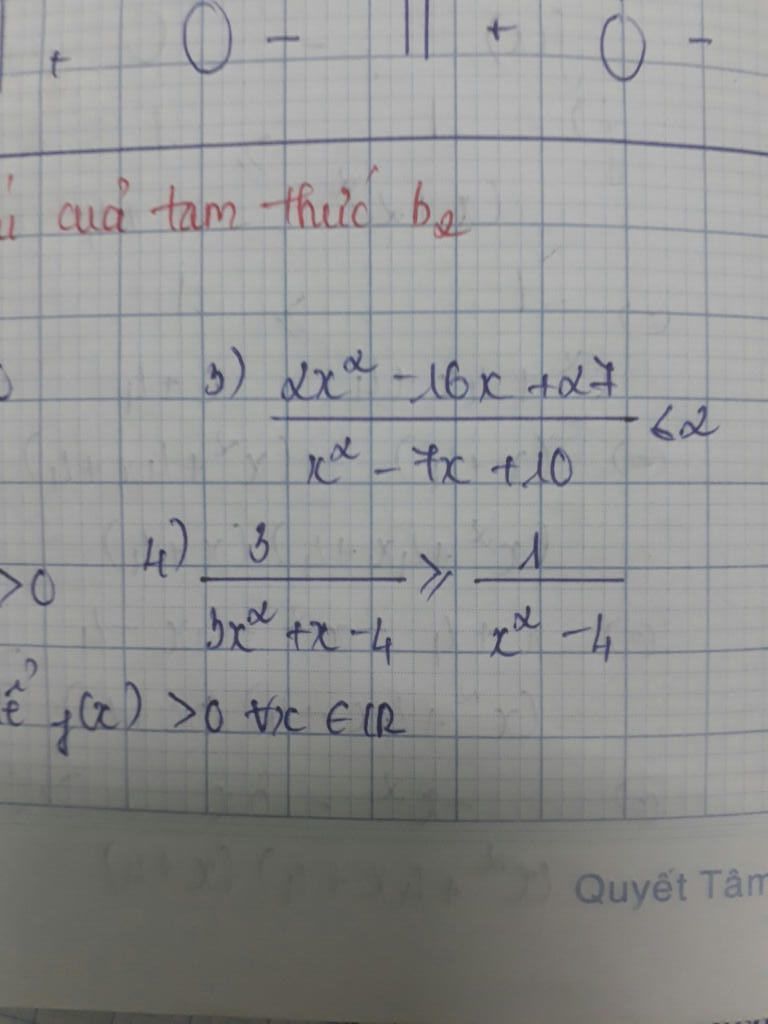 + 0 - || + 0 -
cuả tam thức b2
3) 2x² - 16x + 27
x² - 7x + 10
< 2
4) 3
3x² + x - 4
≥
1
x² - 4
>0
f(x) > 0 ∀x ∈ ℝ
Quyết Tâm